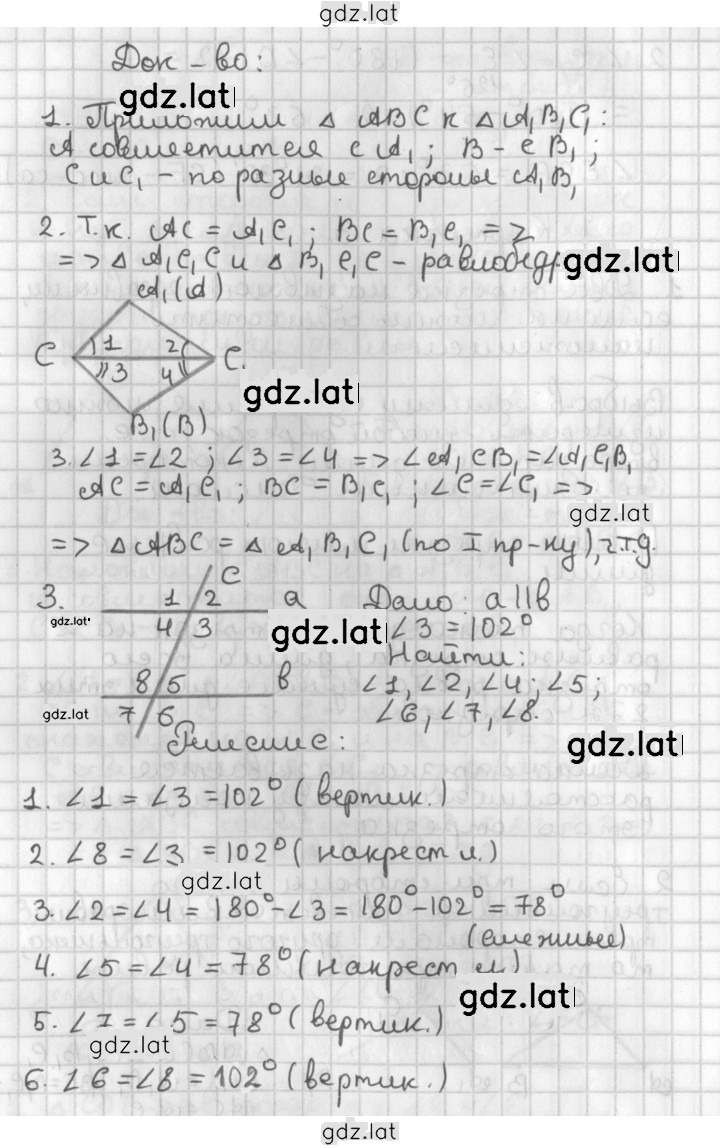 gdz.lat
Док-во:
gdz.lat
1. Приложим △ ABC к △ A₁B₁C₁:
A совместится с A₁; B - с B₁;
C и C₁ - по разные стороны A₁B₁
2. Т.к. AC = A₁C₁; BC = B₁C₁ =>
=> △ A₁C₁C и △ B₁C₁C - равнобедр
gdz.lat
A₁(A)
C 1 2 C₁
3 4
gdz.lat
B₁(B)
3. ∠1 = ∠2; ∠3 = ∠4 => ∠A₁CB₁ = ∠A₁C₁B₁
AC = A₁C₁; BC = B₁C₁; ∠C = ∠C₁ =>
gdz.lat
=> △ABC = △A₁B₁C₁ (по I пр-ку), ч.т.д.
3. 1 2 c a Дано: a||в
gdz.lat 4 3 gdz.lat ∠3 = 102°
Найти:
8 5 в ∠1, ∠2, ∠4; ∠5;
gdz.lat 7 6 ∠6, ∠7, ∠8.
Решение: gdz.lat
1. ∠1 = ∠3 = 102° (вертик.)
2. ∠8 = ∠3 = 102° (накрест л.)
gdz.lat
3. ∠2 = ∠4 = 180° - ∠3 = 180° - 102° = 78°
(смежные)
4. ∠5 = ∠4 = 78° (накрест л.)
gdz.lat
5. ∠7 = ∠5 = 78° (вертик.)
gdz.lat
6. ∠6 = ∠8 = 102° (вертик.)
gdz.lat